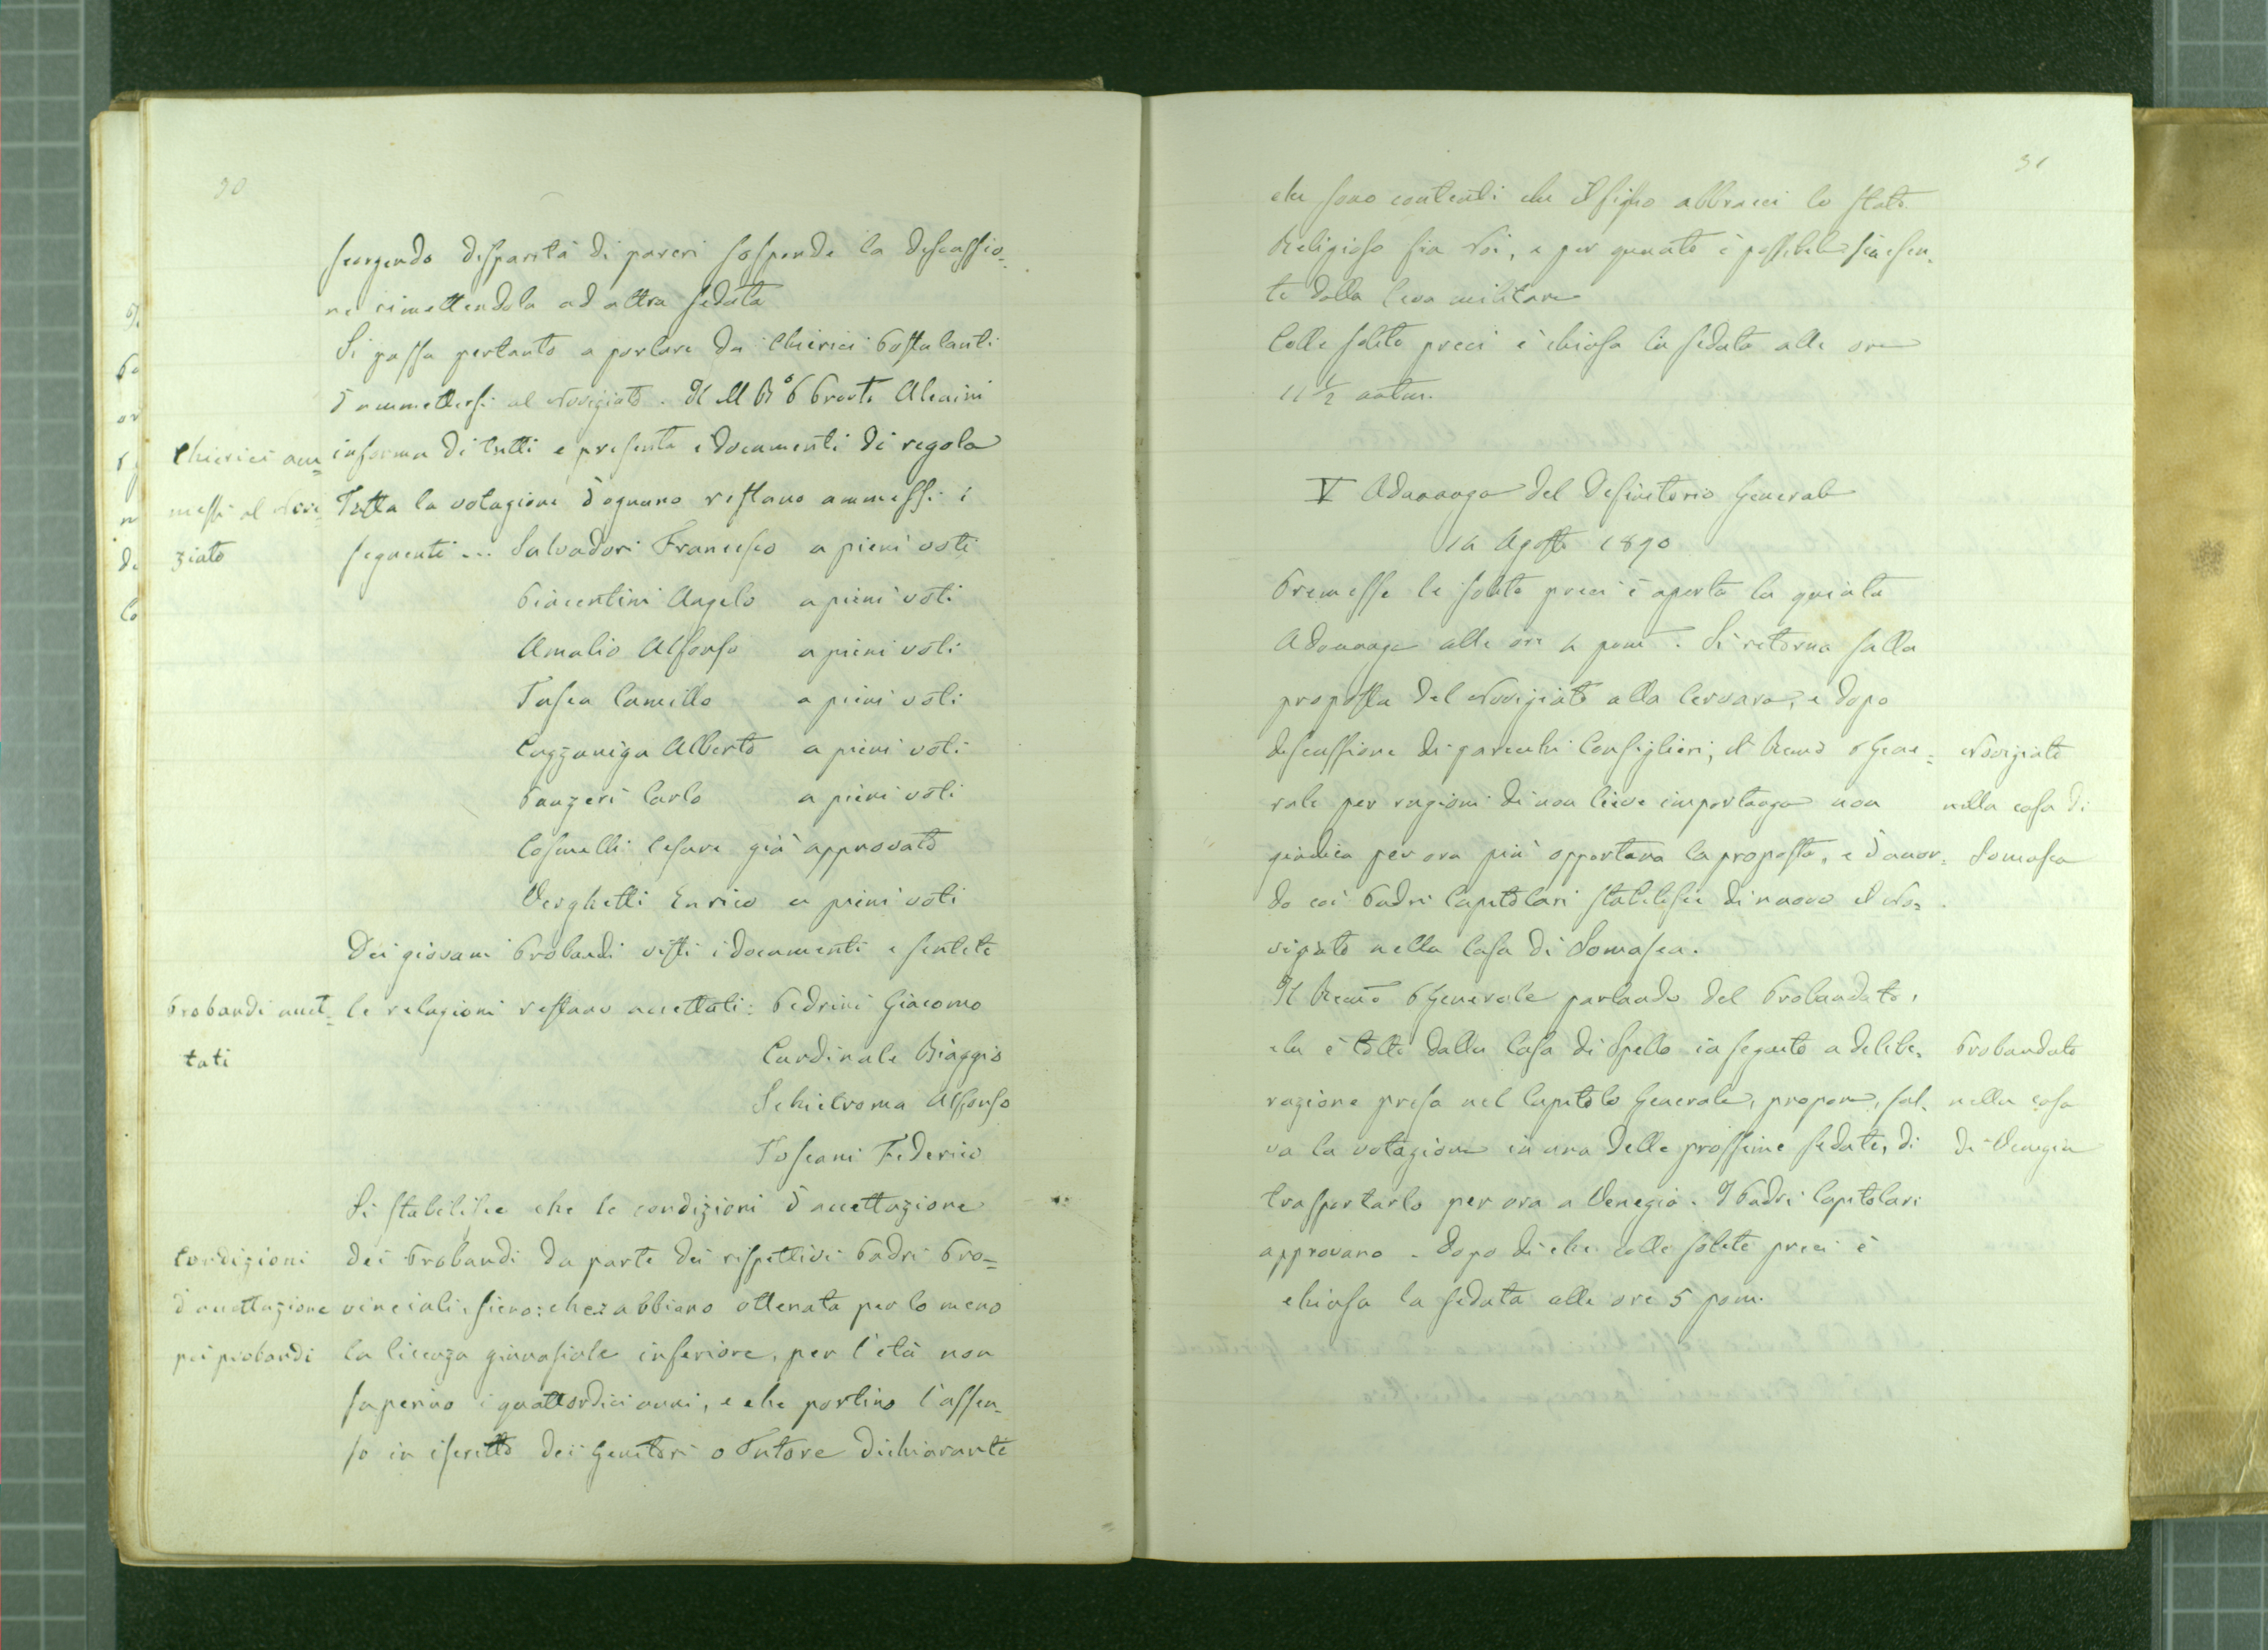 30
scorgendo disparità di pareri sospende la discussio-
ne rimettendola ad altra seduta
Si passa pertanto a parlare dei Chierici Postulanti
d'ammettersi al Noviziato. Il M R P Alcaini
Chierici am= informa di tutti e presenta i documenti di regola
messi al Novi= Fatta la votazione d'ognuno restano ammessi i
ziato seguenti... Salvadori Francesco a pieni voti
Piacentini Angelo a pieni voti
Amalio Alfonso a pieni voti
Tosca Camillo a pieni voti
Cazzaniga Alberto a pieni voti
Panzeri Carlo a pieni voti
Cosmelli Cesare già approvato
Verghetti Enrico a pieni voti
Dei giovani Probandi visti i documenti e sentite
Probandi accet= le relazioni restano accettati: Pedrini Giacomo
tati Cardinale Biaggio
Schietroma Alfonso
Toscani Federico
Si stabilisce che le condizioni d'accettazione
Condizioni dei Probandi da parte dei rispettivi Padri Pro=
d'accettazione vinciali, sieno: che abbiano ottenuta per lo meno
pei probandi la licenza ginnasiale inferiore, per l'età non
superino i quattordici anni, e che portino l'assen-
so in iscritto dei Genitori o Tutore dichiarante
31
che sono contenti che il figlio abbracci lo stato
Religioso fra Noi, e per quanto è possibile sia esen-
te dalla leva militare
Colle solite preci è chiusa la seduta alle ore
11 1/2 antim.
V Adunanza del Definitorio Generale
14 Agosto 1890
Premesse le solite preci è aperta la quinta
Adunanza alle ore 4 pom. Si ritorna sulla
proposta del Noviziato alla Cervara, e dopo
discussione di parecchi Consiglieri, il Remo P Gene= Noviziato
rale per ragioni di non lieve importanza non nella casa di
giudica per ora più opportuna la proposta, e d'accor= Somasca
do coi Padri Capitolari stabilisce di nuovo il No=
viziato nella Casa di Somasca.
Il Remo P Generale parlando del Probandato,
che è tolto dalla Casa di Spello in seguito a delibe= Probandato
razione presa nel Capitolo Generale, propone, sal= nella casa
va la votazione in una delle prossime sedute, di di Venezia
trasportarlo per ora a Venezia. I Padri Capitolari
approvano. Dopo di che colle solite preci è
chiusa la seduta alle ore 5 pom.